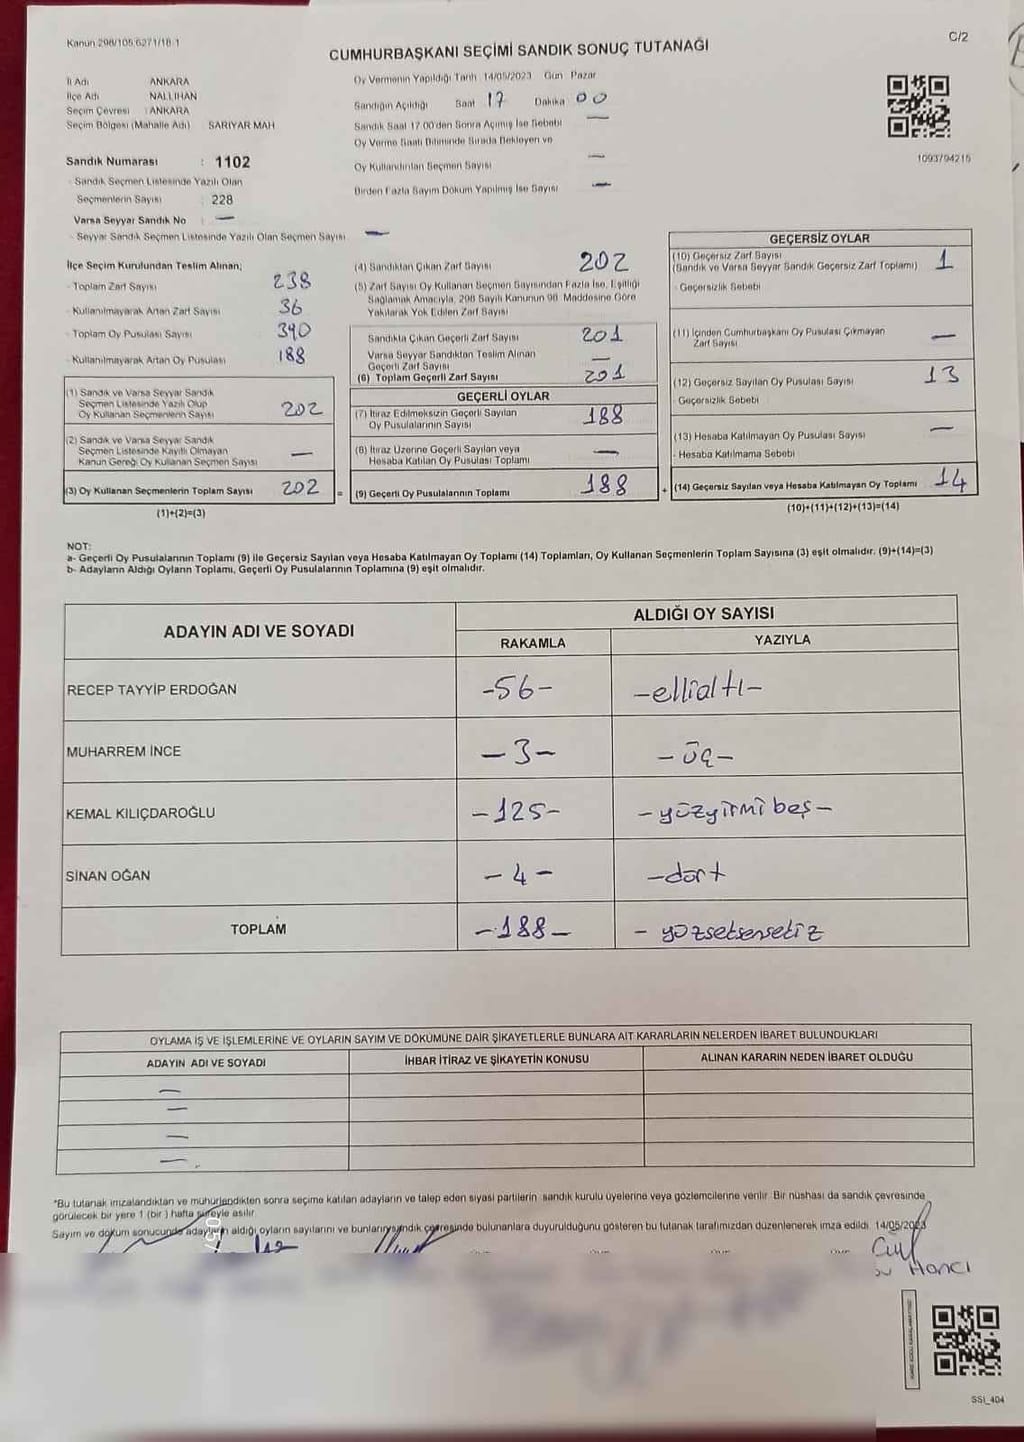 Kanun 298/105,6271/18-1
C/2
CUMHURBAŞKANI SEÇİMİ SANDIK SONUÇ TUTANAĞI
İl Adı ANKARA
İlçe Adı NALLIHAN
Seçim Çevresi : ANKARA
Seçim Bölgesi (Mahalle Adı) SARIYAR MAH
Oy Vermenin Yapıldığı Tarih 14/05/2023 Gün Pazar
Sandığın Açıldığı Saat 17 Dakika 00
Sandık Saat 17.00'den Sonra Açılmış İse Sebebi —
Oy Verme Saati Bitiminde Sırada Bekleyen ve
Oy Kullandırılan Seçmen Sayısı —
Birden Fazla Sayım Döküm Yapılmış İse Sayısı —
1093794215
Sandık Numarası : 1102
- Sandık Seçmen Listesinde Yazılı Olan
Seçmenlerin Sayısı : 228
Varsa Seyyar Sandık No : —
- Seyyar Sandık Seçmen Listesinde Yazılı Olan Seçmen Sayısı —
İlçe Seçim Kurulundan Teslim Alınan;
- Toplam Zarf Sayısı 238
- Kullanılmayarak Artan Zarf Sayısı 36
- Toplam Oy Pusulası Sayısı 390
- Kullanılmayarak Artan Oy Pusulası 188
(1) Sandık ve Varsa Seyyar Sandık
Seçmen Listesinde Yazılı Olup
Oy Kullanan Seçmenlerin Sayısı 202
(2) Sandık ve Varsa Seyyar Sandık
Seçmen Listesinde Kayıtlı Olmayan
Kanun Gereği Oy Kullanan Seçmen Sayısı —
(3) Oy Kullanan Seçmenlerin Toplam Sayısı 202 =
(1)+(2)=(3)
(4) Sandıktan Çıkan Zarf Sayısı 202
(5) Zarf Sayısı Oy Kullanan Seçmen Sayısından Fazla İse, Eşitliği
Sağlamak Amacıyla, 298 Sayılı Kanunun 98. Maddesine Göre
Yakılarak Yok Edilen Zarf Sayısı
Sandıkta Çıkan Geçerli Zarf Sayısı 201
Varsa Seyyar Sandıktan Teslim Alınan
Geçerli Zarf Sayısı —
(6) Toplam Geçerli Zarf Sayısı 201
GEÇERLİ OYLAR
(7) İtiraz Edilmeksizin Geçerli Sayılan
Oy Pusulalarının Sayısı 188
(8) İtiraz Üzerine Geçerli Sayılan veya
Hesaba Katılan Oy Pusulası Toplamı —
(9) Geçerli Oy Pusulalarının Toplamı 188 +
GEÇERSİZ OYLAR
(10) Geçersiz Zarf Sayısı 1
(Sandık ve Varsa Seyyar Sandık Geçersiz Zarf Toplamı)
- Geçersizlik Sebebi
(11) İçinden Cumhurbaşkanı Oy Pusulası Çıkmayan
Zarf Sayısı —
(12) Geçersiz Sayılan Oy Pusulası Sayısı 13
- Geçersizlik Sebebi
(13) Hesaba Katılmayan Oy Pusulası Sayısı —
- Hesaba Katılmama Sebebi
(14) Geçersiz Sayılan veya Hesaba Katılmayan Oy Toplamı 14
(10)+(11)+(12)+(13)=(14)
NOT:
a- Geçerli Oy Pusulalarının Toplamı (9) ile Geçersiz Sayılan veya Hesaba Katılmayan Oy Toplamı (14) Toplamları, Oy Kullanan Seçmenlerin Toplam Sayısına (3) eşit olmalıdır. (9)+(14)=(3)
b- Adayların Aldığı Oyların Toplamı, Geçerli Oy Pusulalarının Toplamına (9) eşit olmalıdır.
ADAYIN ADI VE SOYADI
ALDIĞI OY SAYISI
RAKAMLA YAZIYLA
RECEP TAYYİP ERDOĞAN -56- -ellialtı-
MUHARREM İNCE -3- -üç-
KEMAL KILIÇDAROĞLU -125- -yüzyirmi beş-
SİNAN OĞAN -4- -dört
TOPLAM -188- - yüzseksensekiz
OYLAMA İŞ VE İŞLEMLERİNE VE OYLARIN SAYIM VE DÖKÜMÜNE DAİR ŞİKAYETLERLE BUNLARA AİT KARARLARIN NELERDEN İBARET BULUNDUKLARI
ADAYIN ADI VE SOYADI İHBAR İTİRAZ VE ŞİKAYETİN KONUSU ALINAN KARARIN NEDEN İBARET OLDUĞU
—
—
—
—
*Bu tutanak imzalandıktan ve mühürlendikten sonra seçime katılan adayların ve talep eden siyasi partilerin sandık kurulu üyelerine veya gözlemcilerine verilir. Bir nüshası da sandık çevresinde
görülecek bir yere 1 (bir ) hafta süreyle asılır.
Sayım ve döküm sonucunda adayların aldığı oyların sayılarını ve bunların sandık çevresinde bulunanlara duyurulduğunu gösteren bu tutanak tarafımızdan düzenlenerek imza edildi. 14/05/2023
057
Hancı
SSI_404